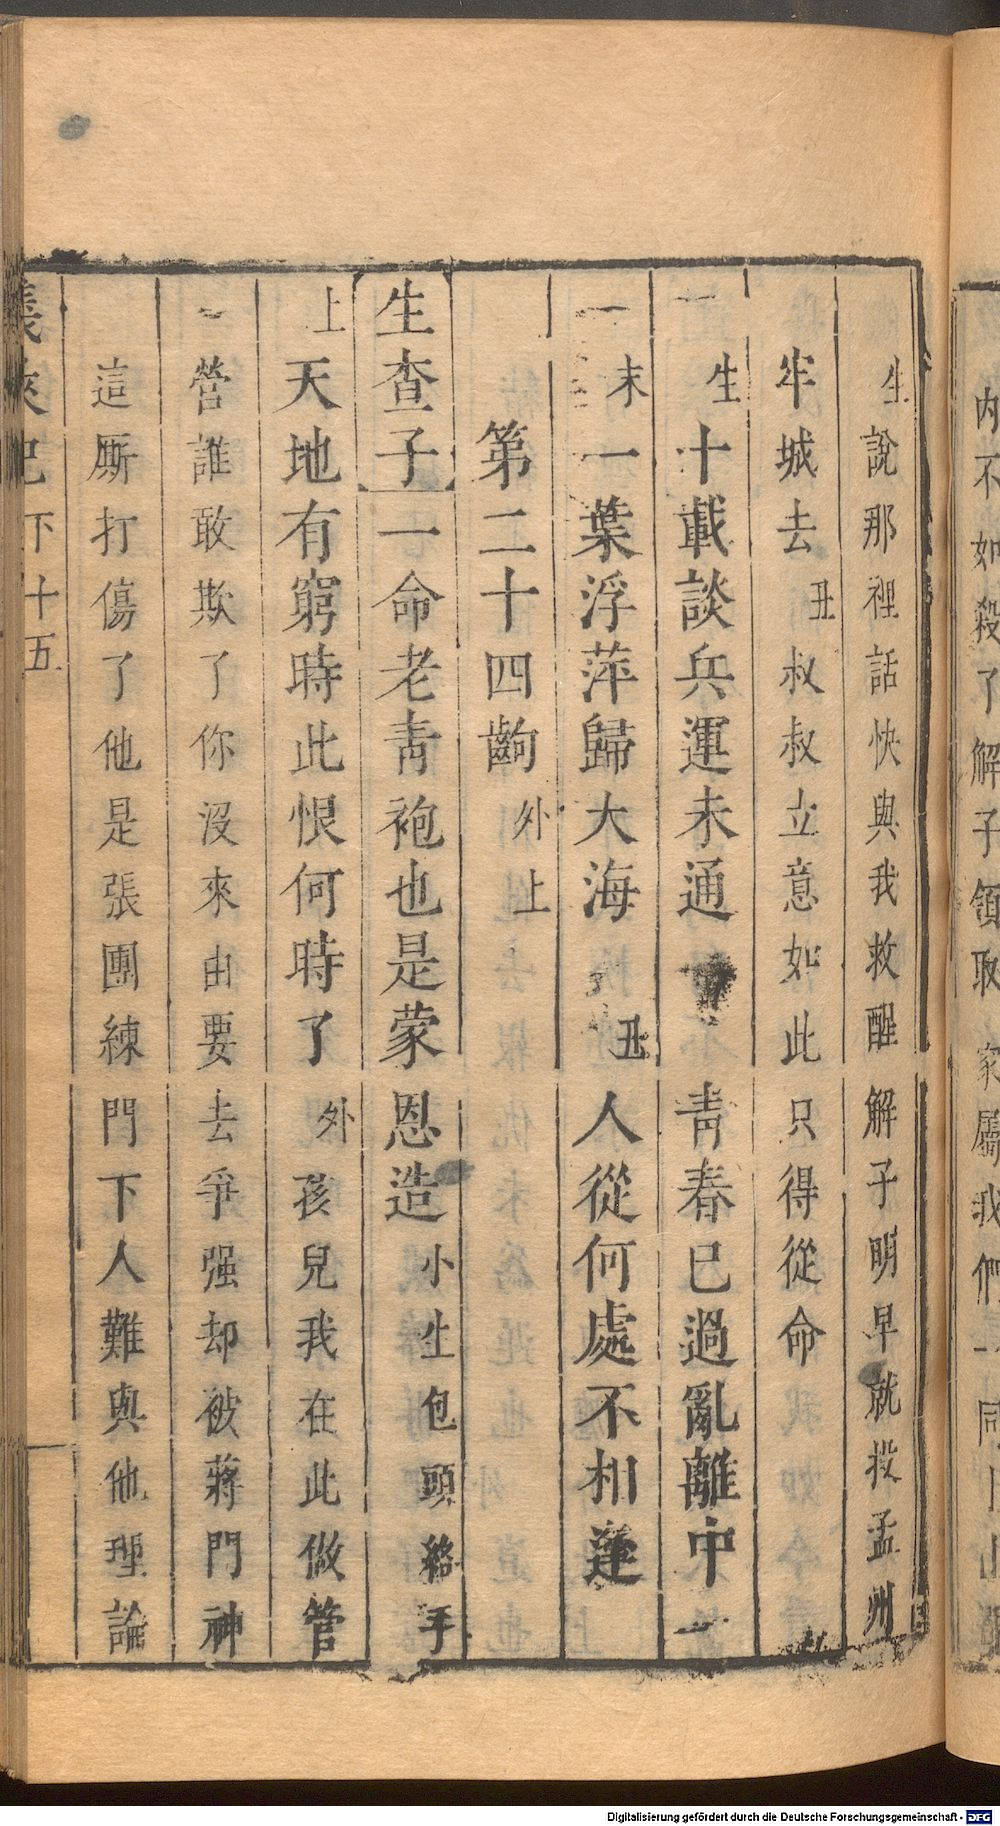 内不如殺了解子領取家屬我們一同
生說那裡話快與我救醒解子明早就投孟州
牢城去丑叔叔立意如此只得從命
生十載談兵運未通　青春已過亂離中
末一葉浮萍歸大海丑人從何處不相逢
第二十四齣外上
生查子一命老青袍也是蒙恩造小生包頭絡手
上天地有窮時此恨何時了外孩兒我在此做管
營誰敢欺了你沒來由要去爭强却被蔣門神
這厮打傷了他是張團練門下人難與他理論
義俠記下十五
Digitalisierung gefördert durch die Deutsche Forschungsgemeinschaft - DFG